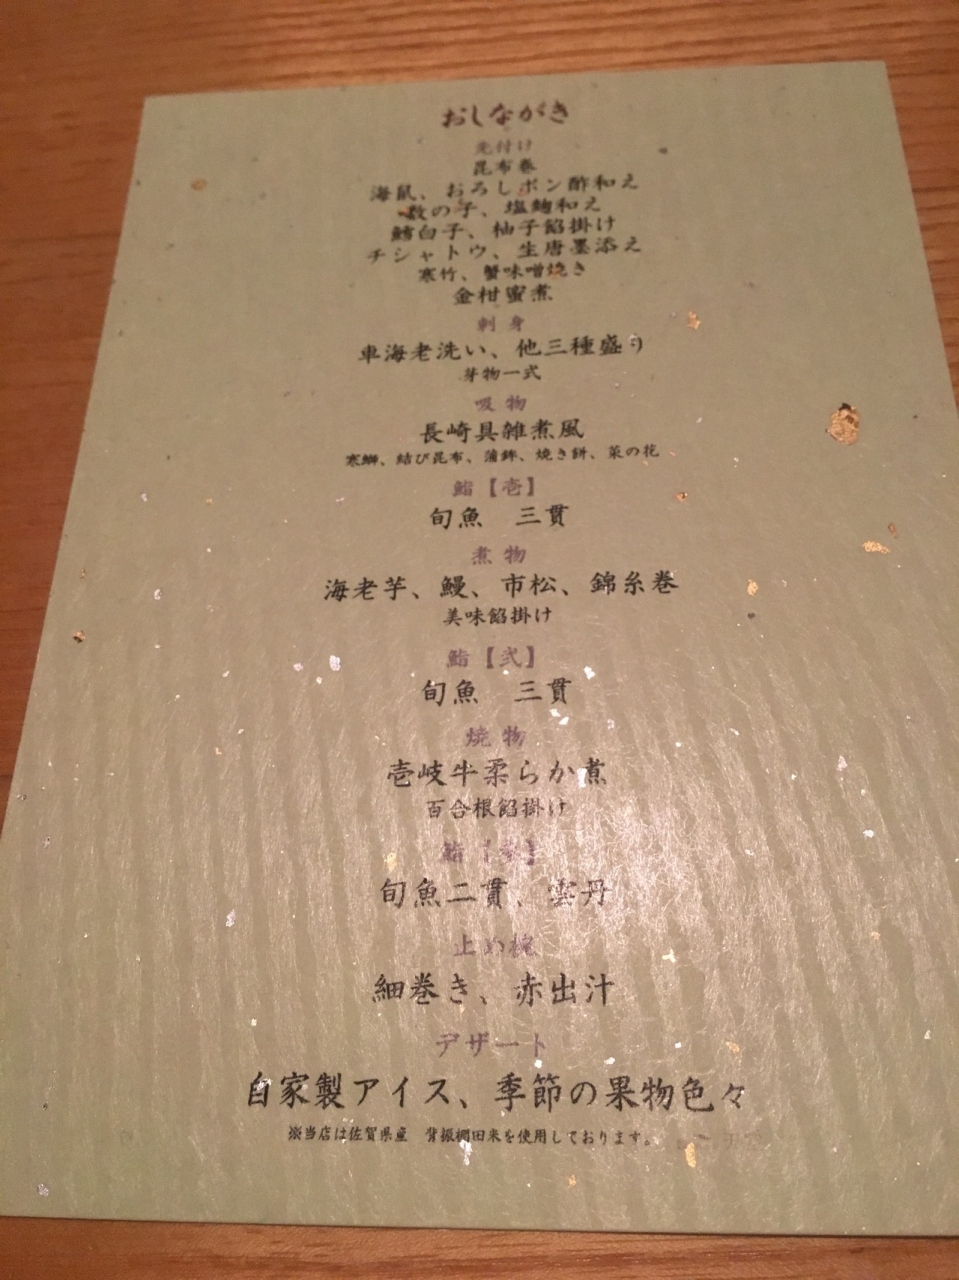 おしながき
先付け
昆布巻
海鼠、おろしポン酢和え
数の子、塩麹和え
鱈白子、柚子餡掛け
チシャトウ、生唐墨添え
寒竹、蟹味噌焼き
金柑蜜煮
刺身
車海老洗い、他三種盛り
芽物一式
吸物
長崎具雑煮風
寒鰤、結び昆布、蒲鉾、焼き餅、菜の花
鮨【壱】
旬魚 三貫
煮物
海老芋、鰻、市松、錦糸巻
美味餡掛け
鮨【弐】
旬魚 三貫
焼物
壱岐牛柔らか煮
百合根餡掛け
鮨【参】
旬魚二貫、雲丹
止め椀
細巻き、赤出汁
デザート
自家製アイス、季節の果物色々
※当店は佐賀県産 背振棚田米を使用しております。